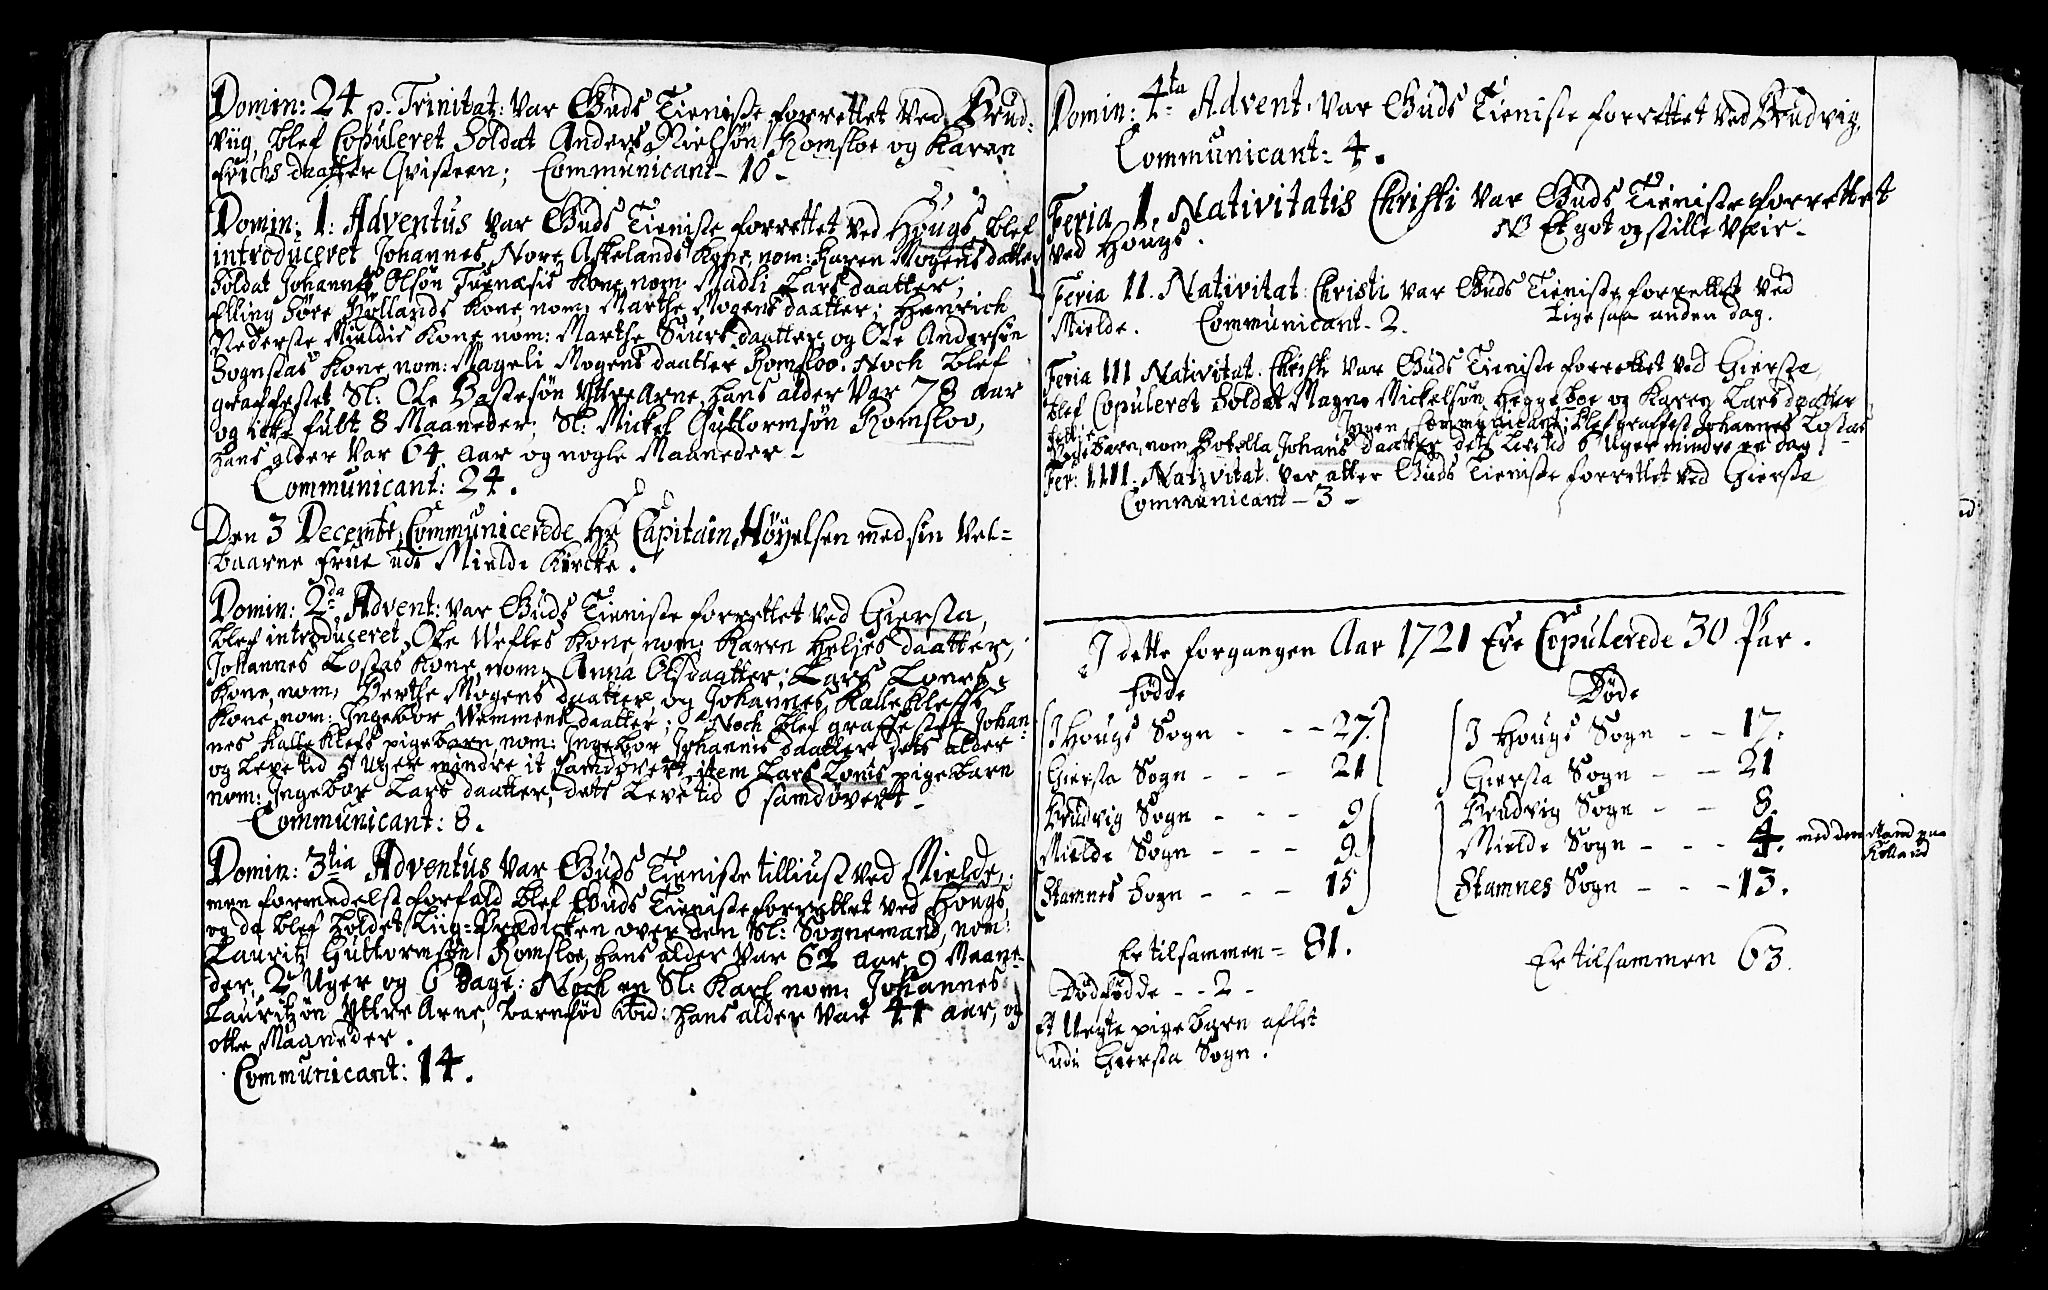 Domin: 24 p. Trinitat: var Guds Tieniste forrettet ved Brud-
viig, blef Copuleret Soldat Anders Nielsøn Romsloe og Karen
Erichs daatter Qvisteen; Communicant- 10-
Domin: 1: Adventus var Guds Tieniste forrettet ved Hougs, blef
introduceret Johannes Nore Askelands Kone, nom: Karen Mogens datter
Soldat Johannes Olsøn Tuenæsis Kone nom: Madli Lars daatter;
Elling Søre Høllands Kone nom: Marthe Mogens daatter; Henrich
Nederste Mieldis Kone nom: Marthe Siurs daatter, og Ole Andersøn
Bognstas Kone, nom: Mageli Mogens daatter Romsloo. Noch blef
graffestet Sl: Ole Bastesøn Yttre Arne, hans alder var 78 aar
og icke fult 8 Maaneder; Sl: Mickel Guttormsøn Romsloo,
hans alder var 64 aar og nogle Maaneder-
Communicant: 24.
Den 3 Decembr, Communicerede Hr Capitain Høyelsen med sin Vel-
baarne Frue udi Mielde Kircke.
Domin: 2da Advent: var Guds Tieniste forrettet ved Giersta,
blef introduceret Ole Wefles Kone nom: Karen Heljes daatter,
Johannes Lostas Kone, nom: Anna Olsdaatter; Lars Lones
Kone, nom: Berthe Mogens daatter og Johannes Kallekleffs
Kone nom: Ingebor Wemmens daatter; Noch blef graffestet Johan-
nes Kallekleffs pigebarn, nom: Ingebor Johannis daatter dets alder
og Levetid 5 Uger mindre it samdøvert, item Lars Lonis pigebarn
nom: Ingebor Lars daatter, dets Levetid 6 samdøvert-
Communicant: 8.
Domin: 3tia Adventus var Guds Tieniste tilliust ved Mielde,
men formedelst forfald blef Guds Tieniste forrettet ved Hougs,
og da blef holdet Liig-Prædicken over den Sl: Sognemand, nom:
Lauritz Guttormsøn Romsloe, hans alder var 62 aar 9 Maane-
der, 2 Uger og 6 Dage: Noch en Sl: Karl nom: Johannes
Lauritzøn Yttre Arne, barnfød ibid: hans alder var 41 aar, og
otte Maaneder.
Communicant: 14.
Domin: 4ta Advent: var Guds Tieniste forrettet ved Brudvig,
Communicant: 4.
Feria 1. Nativitatis Christi var Guds Tieniste forrettet
ved Hougs. NB Et got og stille Veir-
Feria 11. Nativitat: Christi var Guds Tieniste forrettet ved
Mielde. Communicant- 2. Lige saa anden dag.
Feria 111 Nativitat: Christi var Guds Tieniste forrettet ved Giersta,
blef Copuleret Soldat Magne Mickelsøn Heggeboe og Karen Lars daatter
Ingen Communicant; blef graffest Johannes Lostas
pigebarn, nom Botella Johans daatter dets Levetid 6 Uger mindre en dag
Fer: 1111. Nativitat: var atter Guds Tieniste forrettet ved Giersta
Communicant- 3-
I dette forgangen Aar 1721 Ere Copulerede 30 Par.
Fødde
I Hougs Sogn - - - 27.
Giersta Sogn - - - 21
Brudvig Sogn - - - 9
Mielde Sogn - - - 9.
Stamnes Sogn - - - 15
Er tilsammen = 81.
Dødfødde - - 2 -
Et Uegte pigebarn aflet
udi Giersta Sogn.
Døde
I Hougs Sogn - - 17.
Giersta Sogn - - 21
Brudvig Sogn - - 8.
Mielde Sogn - - - 4. med den Mand paa
Kolland
Stamnes Sogn - - - 13.
Er tilsammen 63.